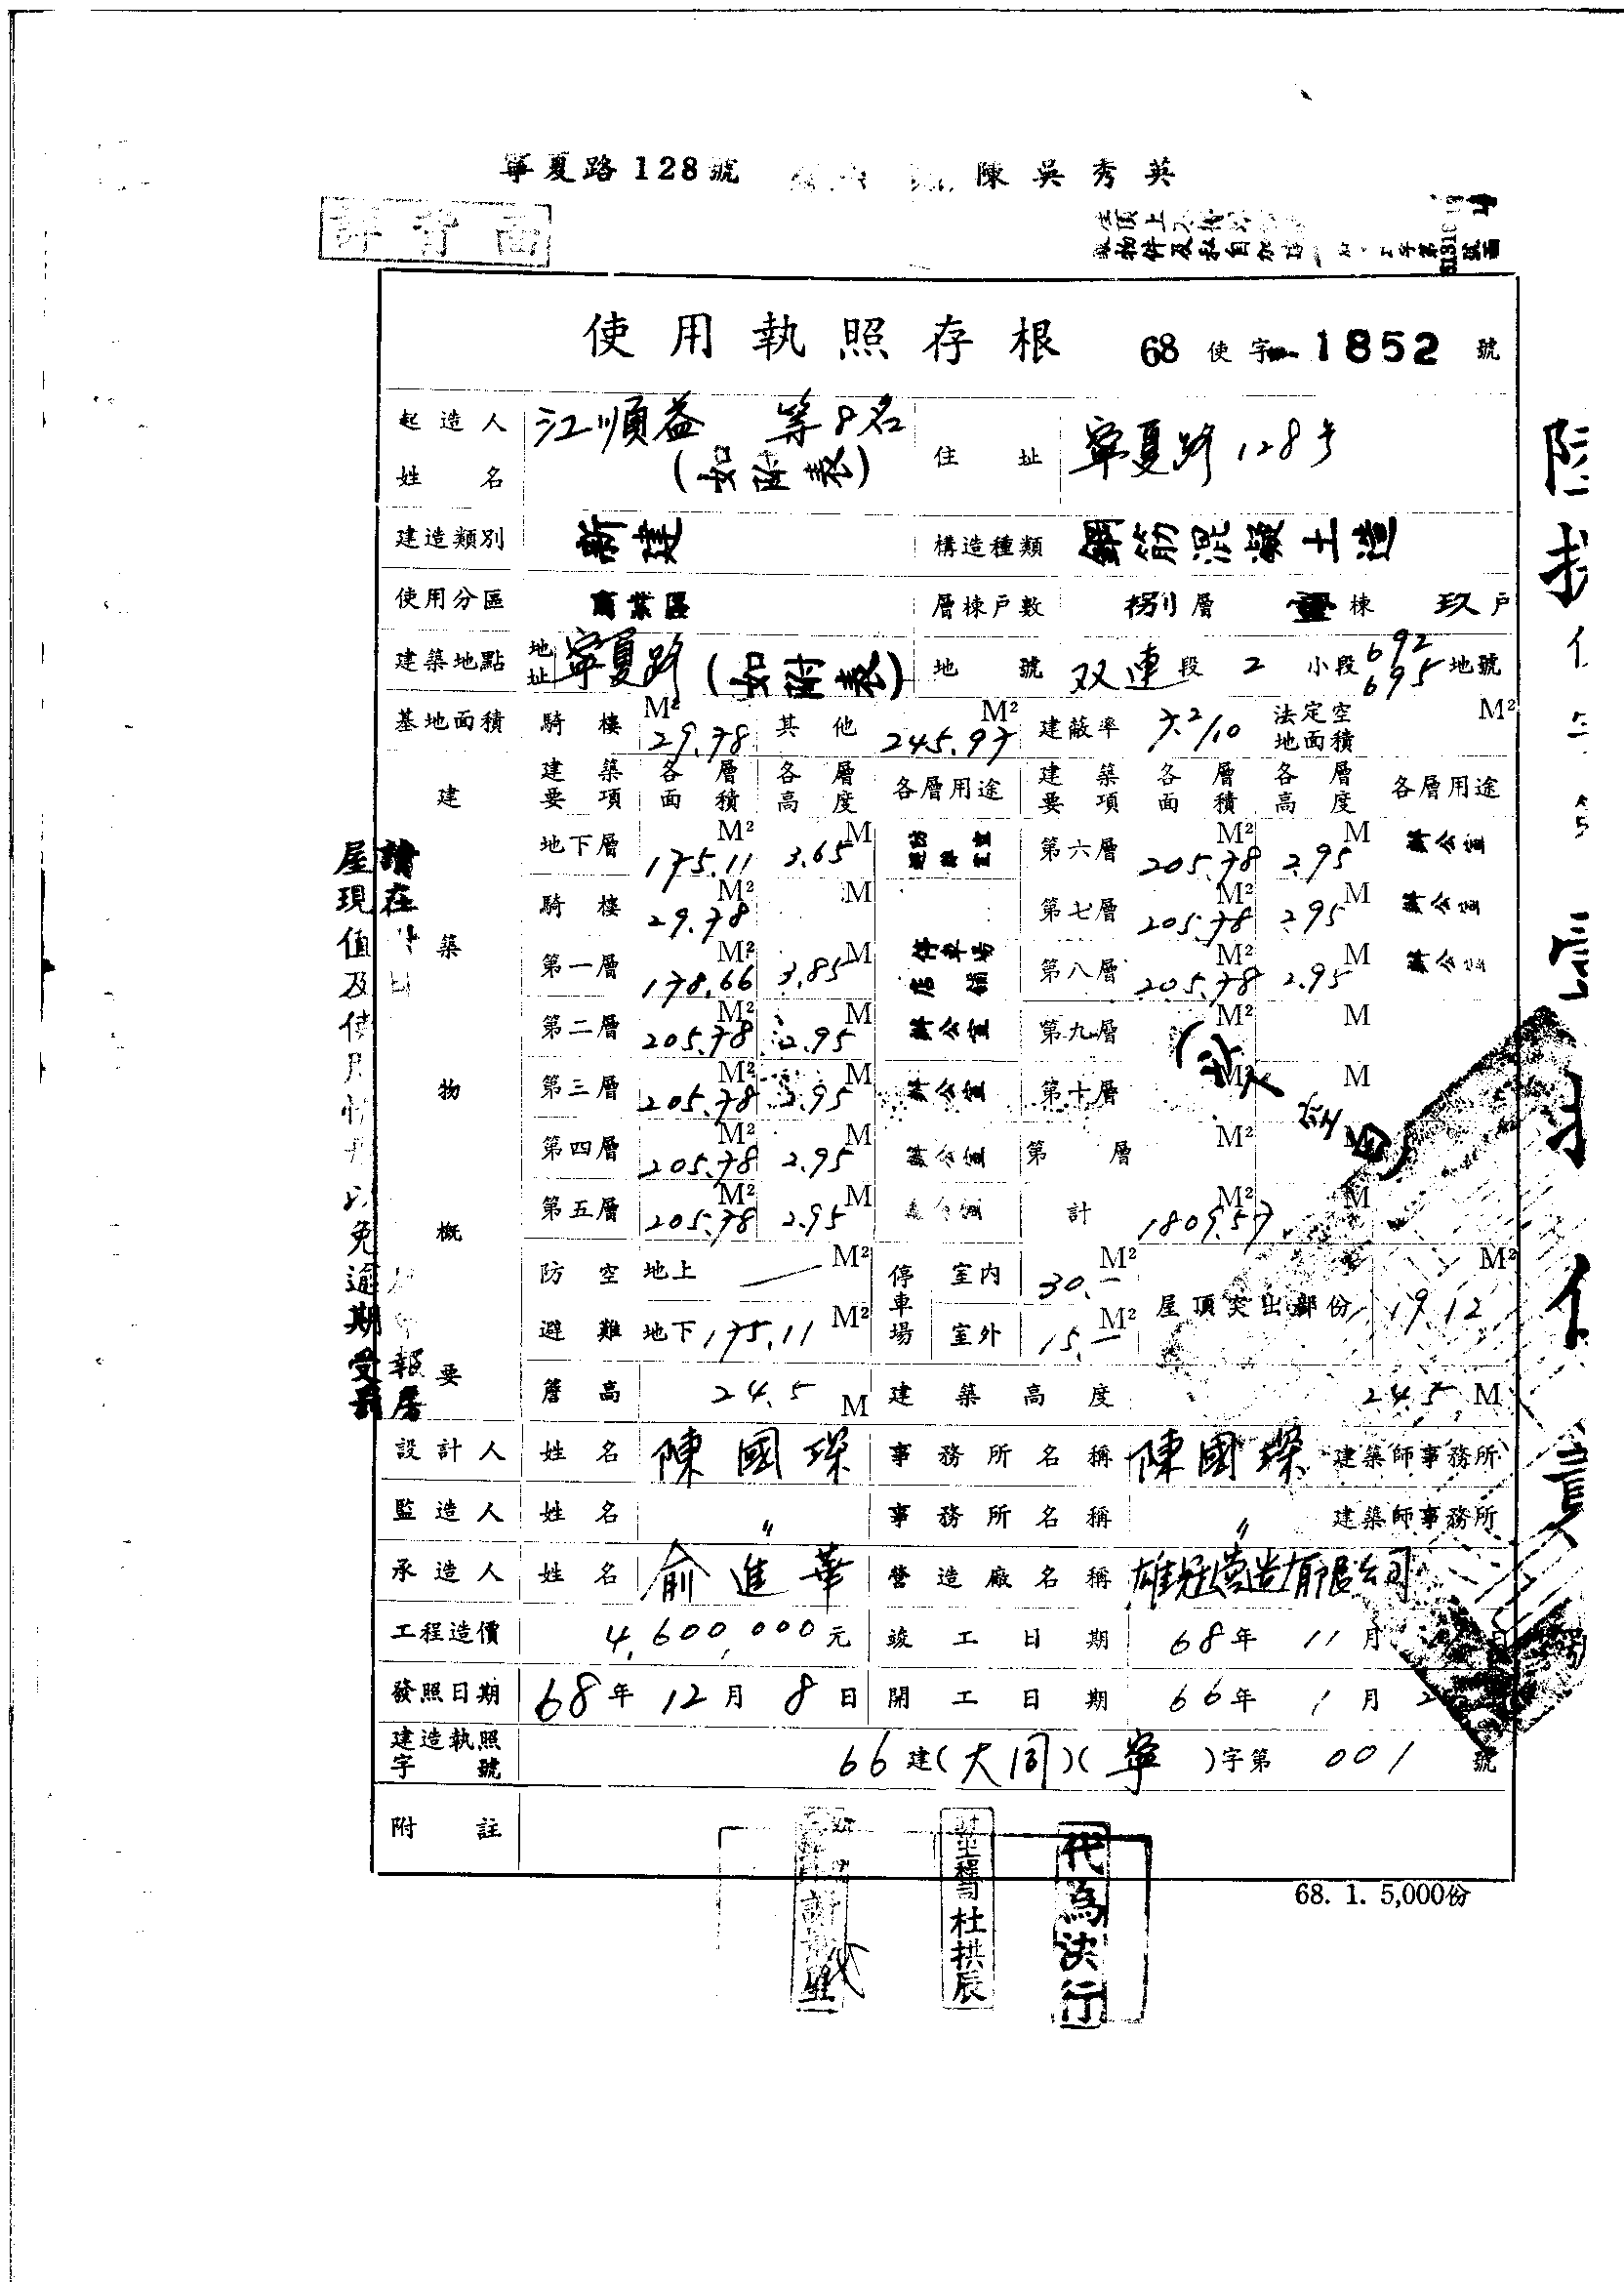 寧夏路128號 陳吳秀英
使用執照存根 68使字 1852 號
起造人姓名 江順益 等8名 (如附表) 住址 寧夏路128号
建造類別 新建 構造種類 鋼筋混凝土造
使用分區 商業區 層棟戶數 捌層 壹棟 玖戶
建築地點 地址 寧夏路(如附表) 地號 双連段 2 小段 692 695 地號
基地面積 騎樓 29.78 M² 其他 245.97 M² 建蔽率 7.2/10 法定空地面積 M²
建築物概要
建築要項 各層面積 各層高度 各層用途 建築要項 各層面積 各層高度 各層用途
地下層 175.11 M² 3.65 M 第六層 205.78 M² 2.95 M 辦公室
騎樓 29.78 M² M 第七層 205.78 M² 2.95 M 辦公室
第一層 178.66 M² 3.85 M 停車場 店鋪 第八層 205.78 M² 2.95 M 辦公
第二層 205.78 M² 2.95 M 辦公室 第九層 M² M
第三層 205.78 M² 2.95 M 辦公室 第十層 M² M
第四層 205.78 M² 2.95 M 辦公室 第 層 M²
第五層 205.78 M² 2.95 M 計 1809.57 M² M
防空避難 地上 — M² 停車場 室內 30.— M² 屋頂突出部份 19.12 M²
地下 175.11 M² 室外 15.— M²
簷高 24.5 M 建築高度 24.5 M
設計人 姓名 陳國琛 事務所名稱 陳國琛 建築師事務所
監造人 姓名 〃 事務所名稱 〃 建築師事務所
承造人 姓名 俞進華 營造廠名稱 雄冠營造有限公司
工程造價 4,600,000元 竣工日期 68年 11月
發照日期 68年 12月 8日 開工日期 66年 1月 2
建造執照字號 66建(大同)(寧)字第 001 號
附註
68. 1. 5,000份
工程司 杜拱辰
代為決行